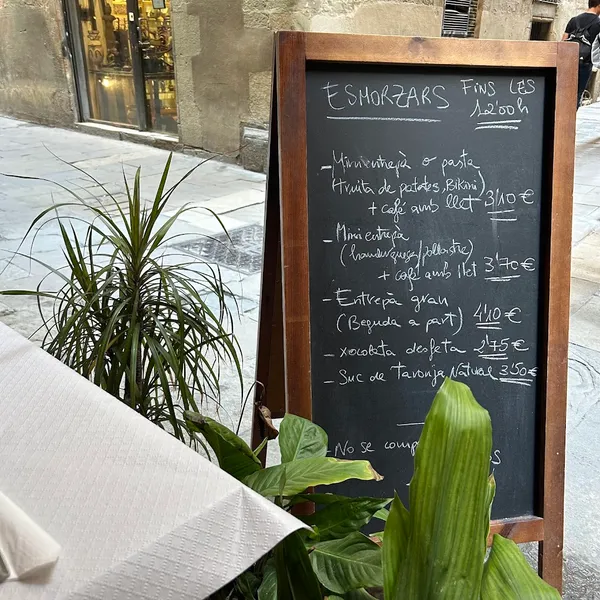 ESMORZARS FINS LES
12'00h
- Mini entrepà o pasta
(truita de patates, Bikini)
+ café amb llet 3'10 €
- Mini entrepà
(hamburguesa/pollastre)
+ café amb llet 3'70 €
- Entrepà gran
(Beguda a part) 4'10 €
- xocolata desfeta 2'75 €
- Suc de Taronja Natural 3'50 €
- No se